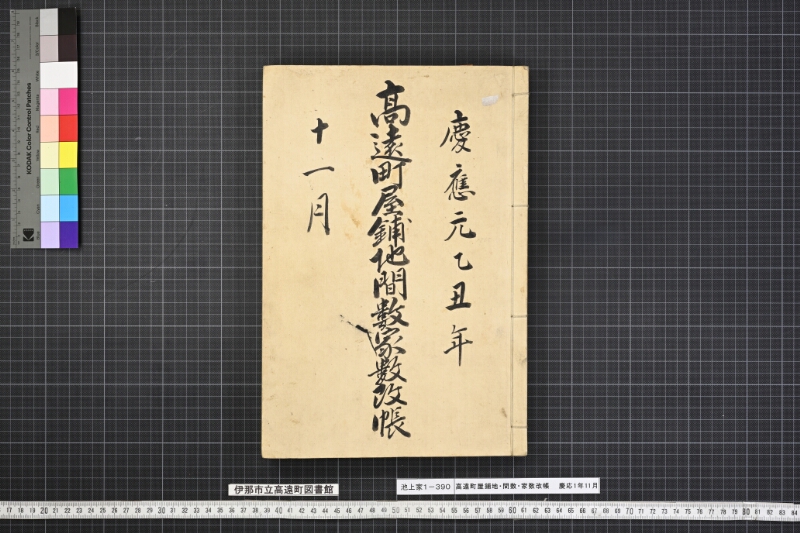 慶應元乙丑年
高遠町屋鋪地間數家數改帳
十一月
伊那市立高遠町図書館
池上家1-390 高遠町屋鋪地・間数・家数改帳 慶応1年11月
KODAK Color Control Patches